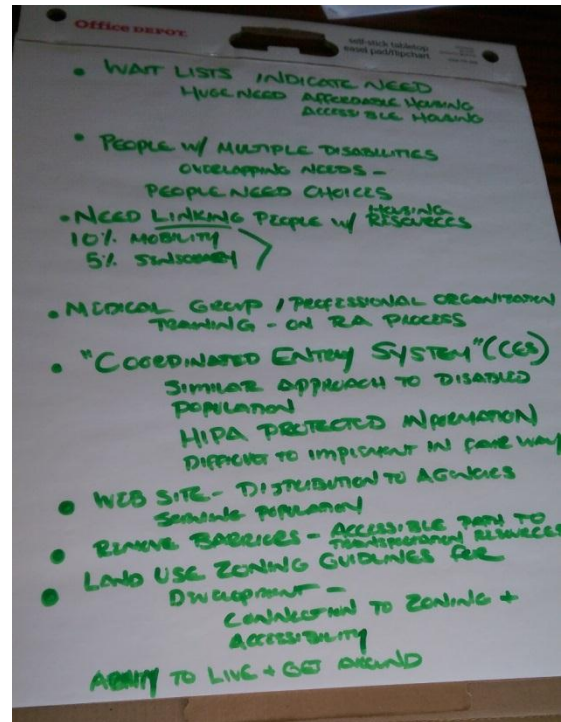 Office DEPOT
self-stick tabletop
easel pad/flipchart
• WAIT LISTS INDICATE NEED
HUGE NEED AFFORDABLE HOUSING
ACCESSIBLE HOUSING
• PEOPLE W/ MULTIPLE DISABILITIES
OVERLAPPING NEEDS -
PEOPLE NEED CHOICES
• NEED LINKING PEOPLE W/ HOUSING
RESOURCES
10% MOBILITY
5% SENSORY
• MEDICAL GROUP / PROFESSIONAL ORGANIZATION
TRAINING - ON RA PROCESS
• "COORDINATED ENTRY SYSTEM" (CES)
SIMILAR APPROACH TO DISABLED
POPULATION
HIPA PROTECTED INFORMATION
DIFFICULT TO IMPLEMENT IN FAIR WAY
• WEB SITE - DISTRIBUTION TO AGENCIES
SERVING POPULATION
• REMOVE BARRIERS - ACCESSIBLE PATH TO
TRANSPORTATION RESOURCES
• LAND USE ZONING GUIDLINES FOR
DEVELOPMENT -
CONNECTION TO ZONING +
ACCESSIBILITY
ABILITY TO LIVE + GET AROUND